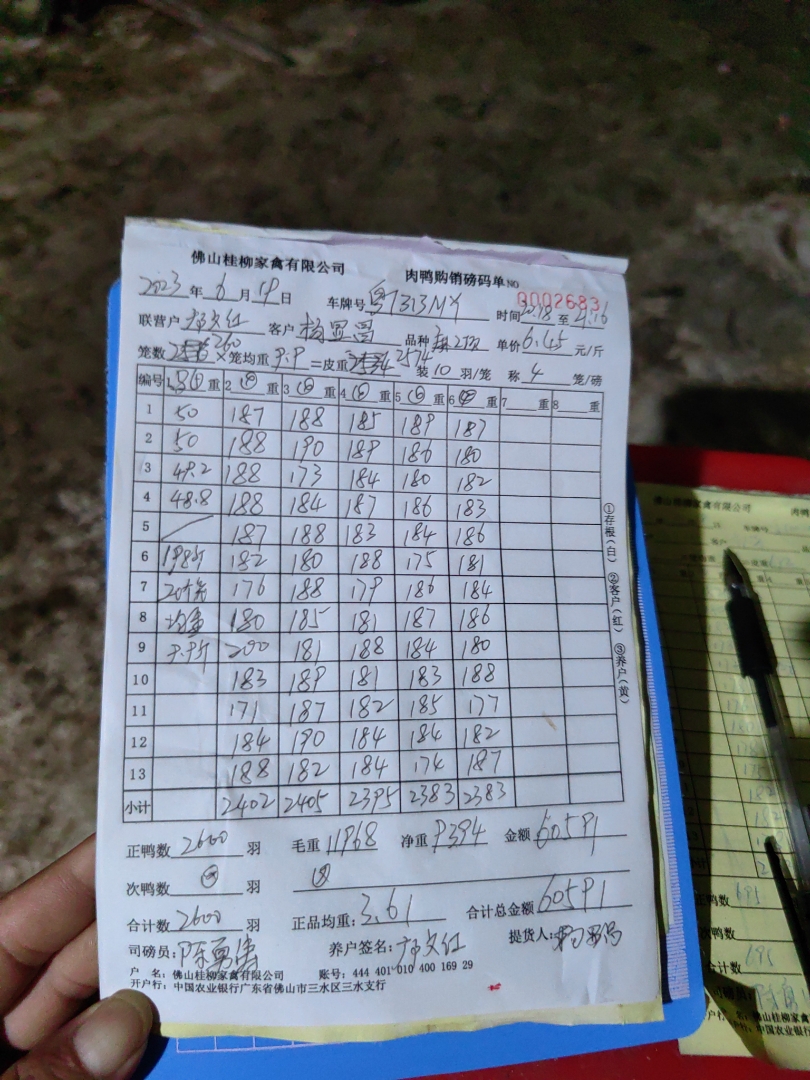 佛山桂柳家禽有限公司 肉鸭购销磅码单 NO 0002683
2023 年 6 月 19 日 车牌号 粤1313MY 时间 20.18 至 21.16
联营户 客户 品种 单价 6.45 元/斤
笼数 260 × 笼均重 9.9 = 皮重 2574 装 10 羽/笼 称 4 笼/磅
编号 1 重 2 重 3 重 4 重 5 重 6 重 7 重 8 重
1 50 187 188 185 189 187
2 50 188 190 189 186 180
3 49.2 188 173 184 180 182
4 48.8 188 184 187 186 183
5 187 188 183 184 186
6 198斤 182 180 188 175 181
7 20个笼 176 188 179 186 184
8 均重 180 185 181 187 186
9 9.9斤 200 181 188 184 180
10 183 189 181 183 188
11 171 187 182 185 177
12 184 190 184 184 182
13 188 182 184 174 187
小计 2402 2405 2395 2383 2383
①存根(白) ②客户(红) ③养户(黄)
正鸭数 2600 羽 毛重 11968 净重 9394 金额 60591
次鸭数 羽
合计数 2600 羽 正品均重: 3.61 合计总金额 60591
司磅员: 陈勇 养户签名: 提货人:
户 名: 佛山桂柳家禽有限公司 账号: 444 401 010 400 169 29
开户行: 中国农业银行广东省佛山市三水区三水支行
佛山桂柳家禽有限公司
正鸭数 695
次鸭数
合计数 695
司磅员: